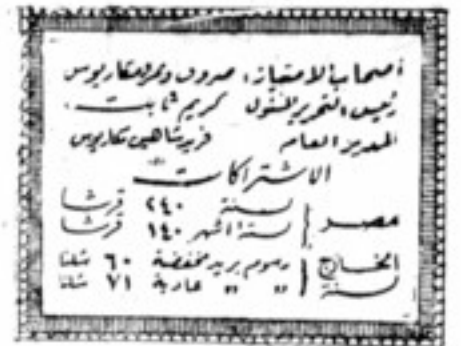 أصحاب الامتياز: صروف ونمر ومكاريوس
رئيس التحرير المسئول كريم ثابت
المدير العام فريد شاهين مكاريوس
الاشتراكات
مصر لسنة ٢٤٠ قرشا
لستة أشهر ١٤٠ قرشا
الخارج لسنة رسوم بريد مخفضة ٦٠ شلنا
" " عادية ٧١ شلنا